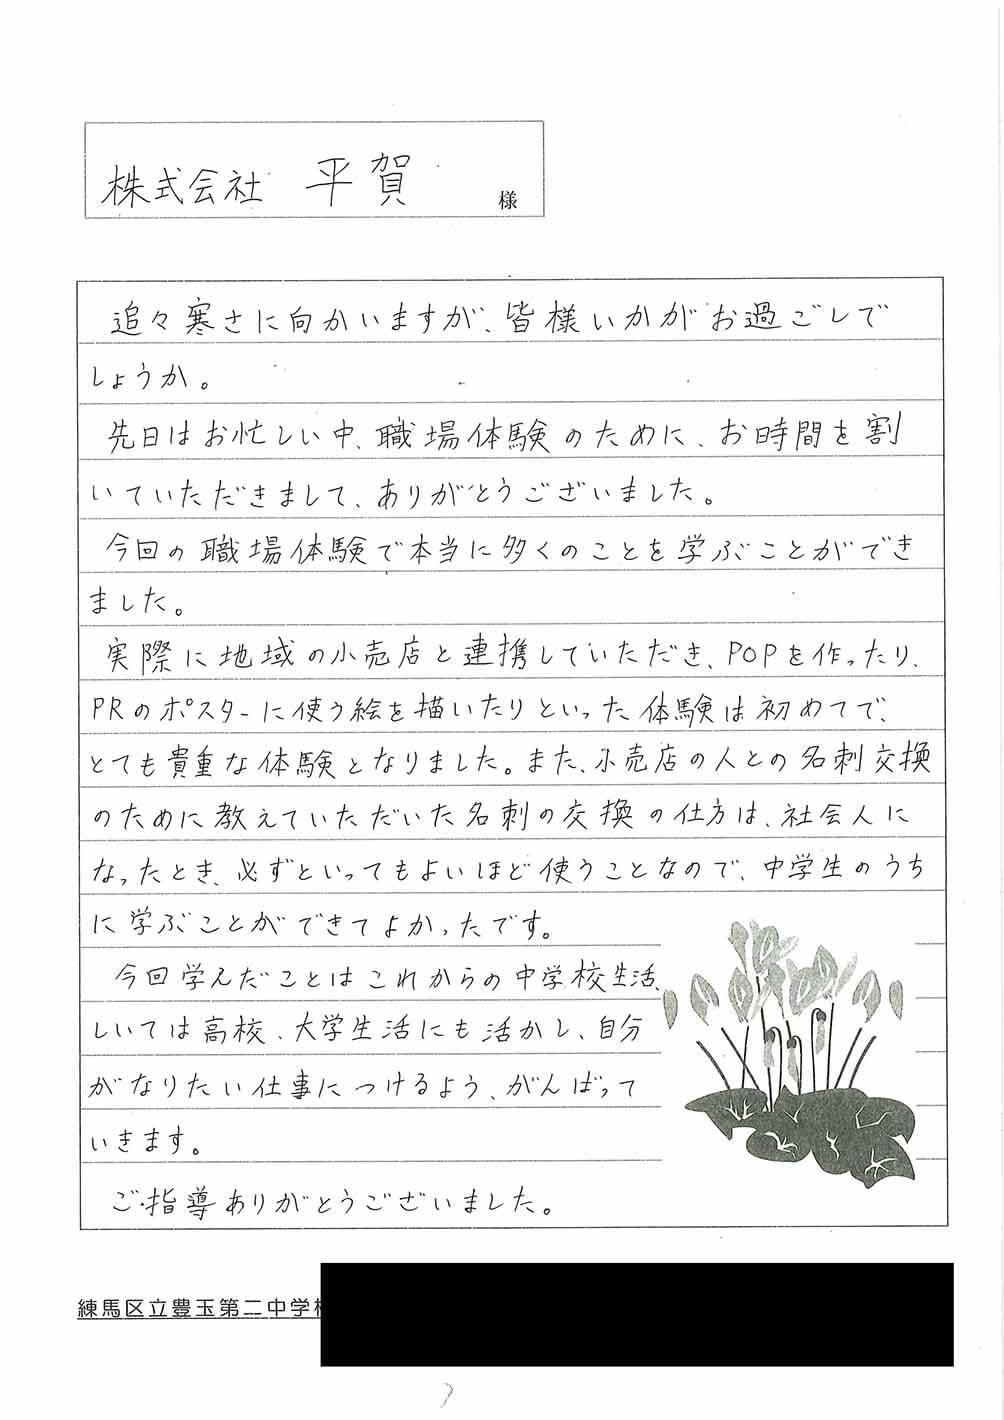 株式会社 平賀 様
追々寒さに向かいますが、皆様いかがお過ごしで
しょうか。
先日はお忙しい中、職場体験のために、お時間を割
いていただきまして、ありがとうございました。
今回の職場体験で本当に多くのことを学ぶことができ
ました。
実際に地域の小売店と連携していただき、POPを作ったり、
PRのポスターに使う絵を描いたりといった体験は初めてで、
とても貴重な体験となりました。また、小売店の人との名刺交換
のために教えていただいた名刺の交換の仕方は、社会人に
なったとき、必ずといってもよいほど使うことなので、中学生のうち
に学ぶことができてよかったです。
今回学んだことはこれからの中学校生活、
しいては高校、大学生活にも活かし、自分
がなりたい仕事につけるよう、がんばって
いきます。
ご指導ありがとうございました。
練馬区立豊玉第二中学校